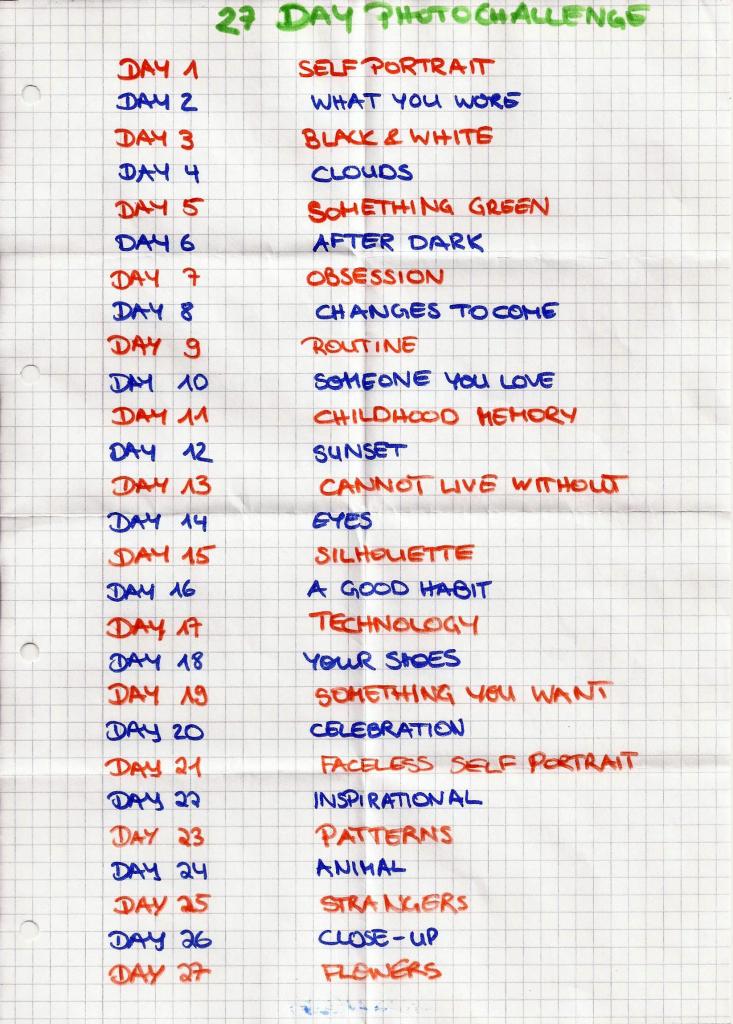 27 DAY PHOTOCHALLENGE
DAY 1 SELF PORTRAIT
DAY 2 WHAT YOU WORE
DAY 3 BLACK & WHITE
DAY 4 CLOUDS
DAY 5 SOMETHING GREEN
DAY 6 AFTER DARK
DAY 7 OBSESSION
DAY 8 CHANGES TO COME
DAY 9 ROUTINE
DAY 10 SOMEONE YOU LOVE
DAY 11 CHILDHOOD MEMORY
DAY 12 SUNSET
DAY 13 CANNOT LIVE WITHOUT
DAY 14 EYES
DAY 15 SILHOUETTE
DAY 16 A GOOD HABIT
DAY 17 TECHNOLOGY
DAY 18 YOUR SHOES
DAY 19 SOMETHING YOU WANT
DAY 20 CELEBRATION
DAY 21 FACELESS SELF PORTRAIT
DAY 22 INSPIRATIONAL
DAY 23 PATTERNS
DAY 24 ANIMAL
DAY 25 STRANGERS
DAY 26 CLOSE-UP
DAY 27 FLOWERS